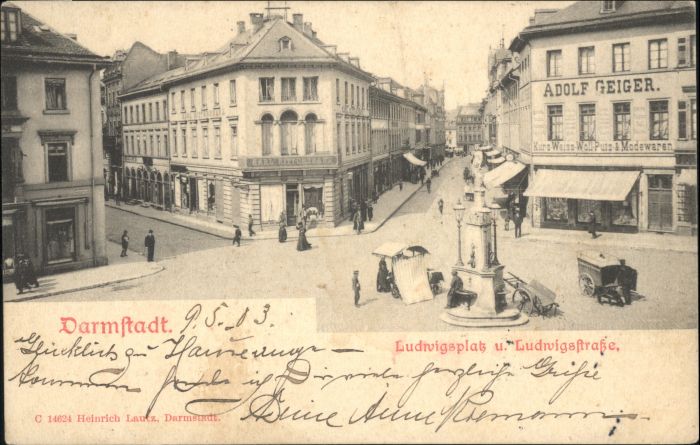 ADOLF GEIGER.
Kurz-Weiss-Woll-Putz & Modewaren
Darmstadt. 9.5.03.
Ludwigsplatz u. Ludwigsstraße.
Glücklich zu Hause
sende ich Dir viele herzliche Grüße
Deine Anna
C 14624 Heinrich Lautz, Darmstadt.